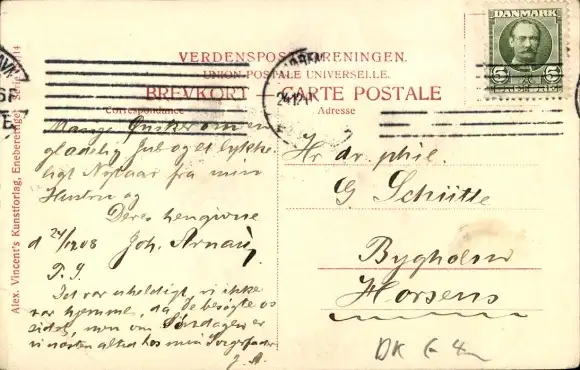 DANMARK
5 5
VERDENSPOSTFORENINGEN.
UNION POSTALE UNIVERSELLE.
BREVKORT CARTE POSTALE
Correspondance Adresse
Alex. Vincent's Kunstforlag, Eneberettiget
Mange Ønsker om en
glædelig Jul og et lykke-
ligt Nytaar fra min
Hustru og
Deres hengivne
d 24/12 08 Joh.
P. S.
Det var uheldigt, vi ikke
var hjemme, da De besøgte os
sidst, men om Søndagen er
vi næsten altid hos min Svigerfader
J. A.
Hr. dr. phil.
G Schütte
Bygholm
Horsens
DK